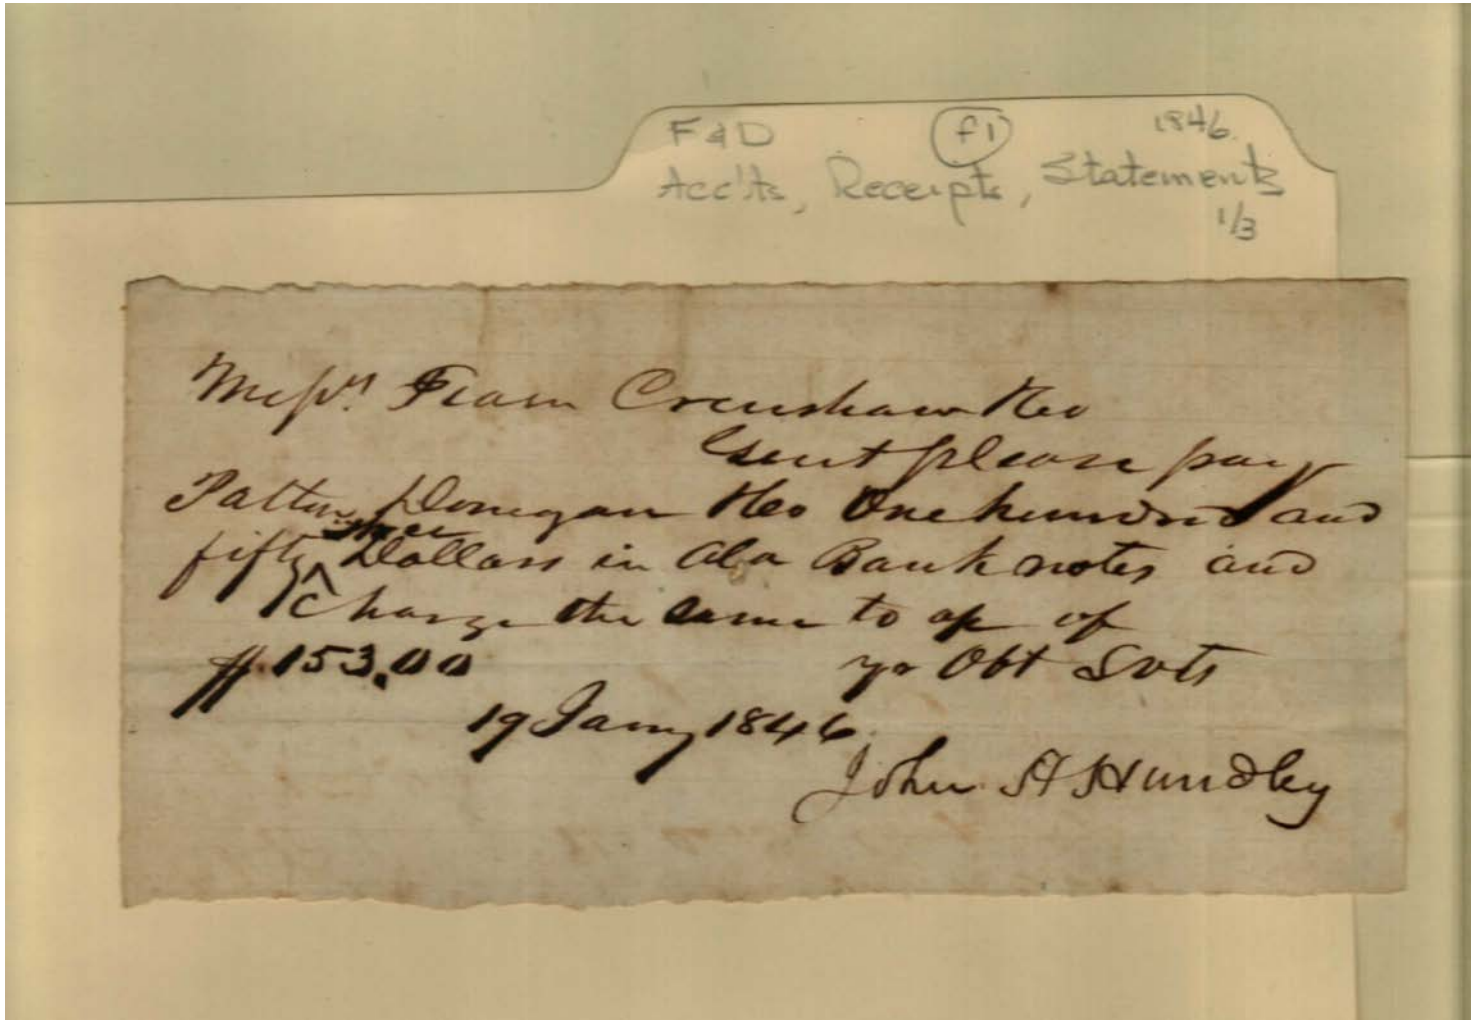 F & D f1 1846.
Acc'ts, Receipts, Statements
1/3
Messrs. Fearn Crenshaw & Co
Gent please pay
Patton Donegan & Co One hundred and
three
fifty ^ Dollars in Ala Bank notes and
charge the same to ac of
$153.00 yr Obt Svts
19 Jany 1846.
John H Hundley